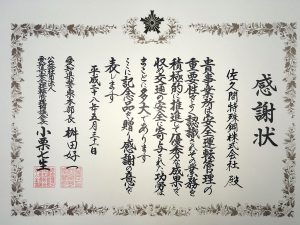 感謝状
佐久間特殊鋼株式会社 殿
貴事業所は安全運転管理の
重要性をよく認識されその業務を
積極的に推進して優秀な成果を
収め交通の安全に寄与された功労は
まことに多大であります
ここに記念品を贈り感謝の意を
表します
平成二十八年五月三十一日
愛知県警察本部長 桝田好一
公益社団法人
小栗七生